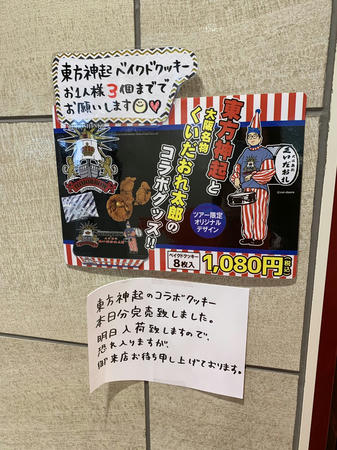 東方神起 ベイクドクッキー
お1人様3個まで で
お願いします
東方神起と
大阪名物
くいだおれ太郎の
コラボグッズ!!
ツアー限定
オリジナル
デザイン
くいだおれ
ベイクドクッキー
8枚入
1,080円(税込)
東方神起のコラボクッキー
本日分完売致しました。
明日入荷致しますので、
恐れ入りますが、
御来店お待ち申し上げております。